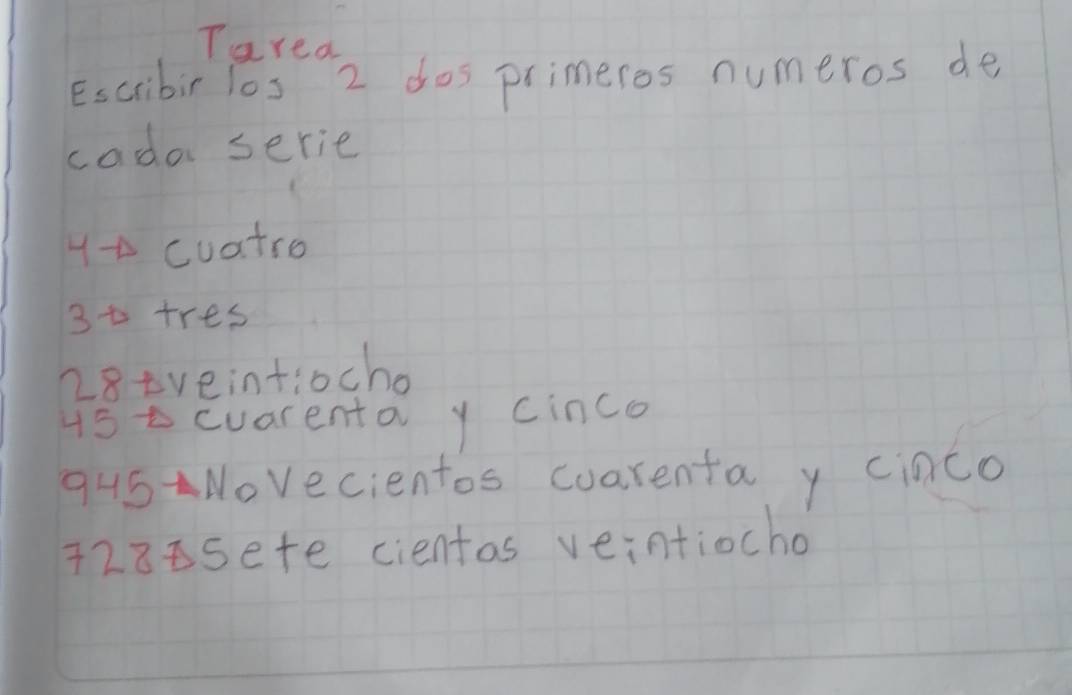 Tarea
Escribir los 2 dos primeros numeros de
cada serie
4→ cuatro
3→ tres
28→veintiocho
45→ cuarenta y cinco
945→Novecientos cuarenta y cinco
728→Sete cientas veintiocho